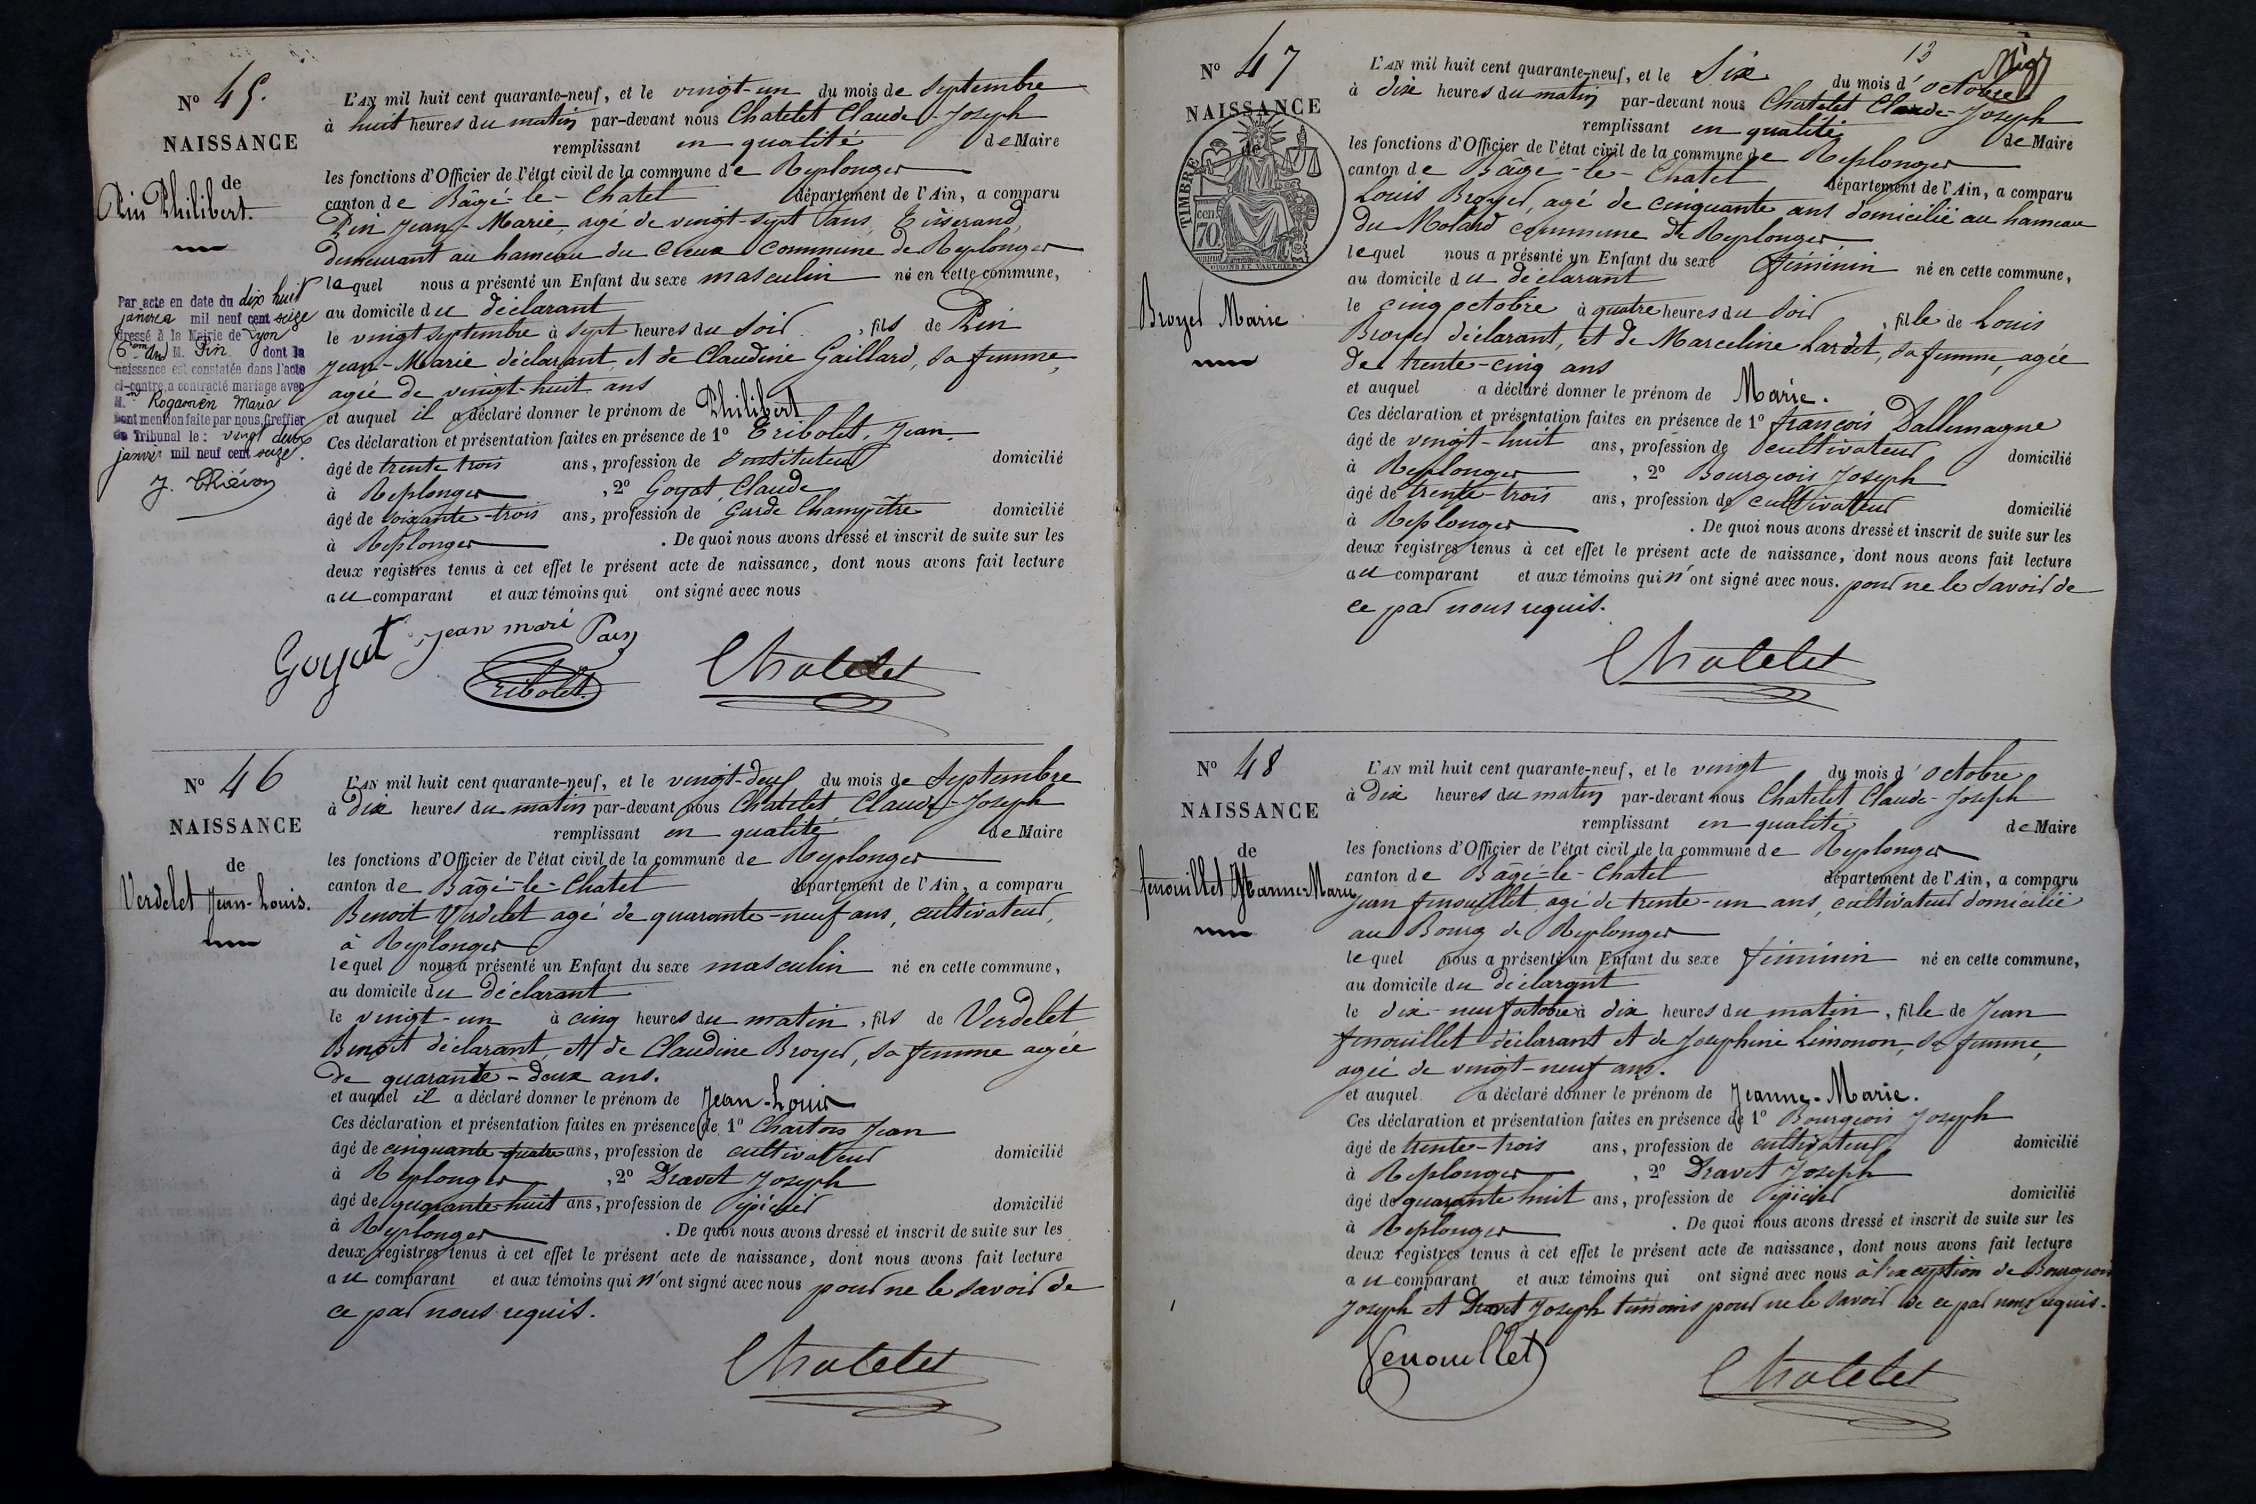 Nº 45.
NAISSANCE
de
Pin Philibert.
Par acte en date du dix huit
janvier mil neuf cent seize
dressé à la Mairie de Lyon
(6em arr) M. Pin dont la
naissance est constatée dans l'acte
ci-contre, a contracté mariage avec
M. Rogamen Maria
Dont mention faite par nous, Greffier
du Tribunal le : vingt deux
janvier mil neuf cent seize.
L'AN mil huit cent quarante-neuf, et le vingt-un du mois de Septembre
à huit heures du matin par-devant nous Chatelet Claude-Joseph
remplissant en qualité de Maire
les fonctions d'Officier de l'état civil de la commune de Replonges
canton de Bâgé-le-Chatel département de l'Ain, a comparu
Pin Jean-Marie, agé de vingt-sept ans, Tisserand,
demeurant au hameau du Creux commune de Replonges
lequel nous a présenté un Enfant du sexe masculin né en cette commune,
au domicile du déclarant
le vingt septembre à sept heures du soir, fils de Pin
Jean-Marie déclarant, et de Claudine Gaillard, sa femme,
agée de vingt-huit ans
et auquel il a déclaré donner le prénom de Philibert
Ces déclaration et présentation faites en présence de 1º Tribolet, Jean,
âgé de trente trois ans, profession de Instituteur domicilié
à Replonges, 2º Goyat, Claude
âgé de soixante-trois ans, profession de Garde Champêtre domicilié
à Replonges. De quoi nous avons dressé et inscrit de suite sur les
deux registres tenus à cet effet le présent acte de naissance, dont nous avons fait lecture
au comparant et aux témoins qui ont signé avec nous
Goyat Jean mari Pain
Tribolet
Chatelet
Nº 46
NAISSANCE
de
Verdelet Jean-Louis.
L'AN mil huit cent quarante-neuf, et le vingt-deux du mois de Septembre
à dix heures du matin par-devant nous Chatelet Claude-Joseph
remplissant en qualité de Maire
les fonctions d'Officier de l'état civil de la commune de Replonges
canton de Bâgé-le-Chatel département de l'Ain, a comparu
Benoit Verdelet agé de quarante-neuf ans, cultivateur,
à Replonges
lequel nous a présenté un Enfant du sexe masculin né en cette commune,
au domicile du déclarant
le vingt-un à cinq heures du matin, fils de Verdelet
Benoit déclarant, et de Claudine Broyer, sa femme agée
de quarante-deux ans.
et auquel il a déclaré donner le prénom de Jean-Louis
Ces déclaration et présentation faites en présence de 1º Chartois Jean
âgé de cinquante quatre ans, profession de cultivateur domicilié
à Replonges, 2º Dravet Joseph
âgé de quarante-huit ans, profession de épicier domicilié
à Replonges. De quoi nous avons dressé et inscrit de suite sur les
deux registres tenus à cet effet le présent acte de naissance, dont nous avons fait lecture
au comparant et aux témoins qui n'ont signé avec nous pour ne le savoir de
ce par nous requis.
Chatelet
13
Nº 47
NAISSANCE
de
TIMBRE
70 cen
Broyer Marie
L'AN mil huit cent quarante-neuf, et le Six du mois d'octobre
à dix heures du matin par-devant nous Chatelet Claude-Joseph
remplissant en qualité de Maire
les fonctions d'Officier de l'état civil de la commune de Replonges
canton de Bâgé-le-Chatel département de l'Ain, a comparu
Louis Broyer, agé de cinquante ans domicilié au hameau
du Molard commune de Replonges
lequel nous a présenté un Enfant du sexe féminin né en cette commune,
au domicile du déclarant
le cinq octobre à quatre heures du soir, fille de Louis
Broyer déclarant, et de Marceline Lardet, sa femme, agée
de trente-cinq ans
et auquel a déclaré donner le prénom de Marie.
Ces déclaration et présentation faites en présence de 1º françois Dallemagne
âgé de vingt-huit ans, profession de cultivateur domicilié
à Replonges, 2º Bourgeois Joseph
âgé de trente-trois ans, profession de cultivateur domicilié
à Replonges. De quoi nous avons dressé et inscrit de suite sur les
deux registres tenus à cet effet le présent acte de naissance, dont nous avons fait lecture
au comparant et aux témoins qui n'ont signé avec nous. pour ne le savoir de
ce par nous requis.
Chatelet
Nº 48
NAISSANCE
de
fenouillet Jeanne-Marie
L'AN mil huit cent quarante-neuf, et le vingt du mois d'octobre
à dix heures du matin par-devant nous Chatelet Claude-Joseph
remplissant en qualité de Maire
les fonctions d'Officier de l'état civil de la commune de Replonges
canton de Bâgé-le-Chatel département de l'Ain, a comparu
Jean fenouillet agé de trente-un ans, cultivateur domicilié
au Bourg de Replonges
lequel nous a présenté un Enfant du sexe féminin né en cette commune,
au domicile du déclarant
le dix-neuf octobre à dix heures du matin, fille de Jean
fenouillet déclarant et de Josephine Limonon, sa femme,
agée de vingt-neuf ans.
et auquel a déclaré donner le prénom de Jeanne-Marie.
Ces déclaration et présentation faites en présence de 1º Bourgeois Joseph
âgé de trente-trois ans, profession de cultivateur domicilié
à Replonges, 2º Dravet Joseph
âgé de quarante huit ans, profession de épicier domicilié
à Replonges. De quoi nous avons dressé et inscrit de suite sur les
deux registres tenus à cet effet le présent acte de naissance, dont nous avons fait lecture
au comparant et aux témoins qui ont signé avec nous à l'exception de Bourgeois
Joseph et Dravet Joseph témoins pour ne le savoir de ce par nous requis.
Fenouillet
Chatelet